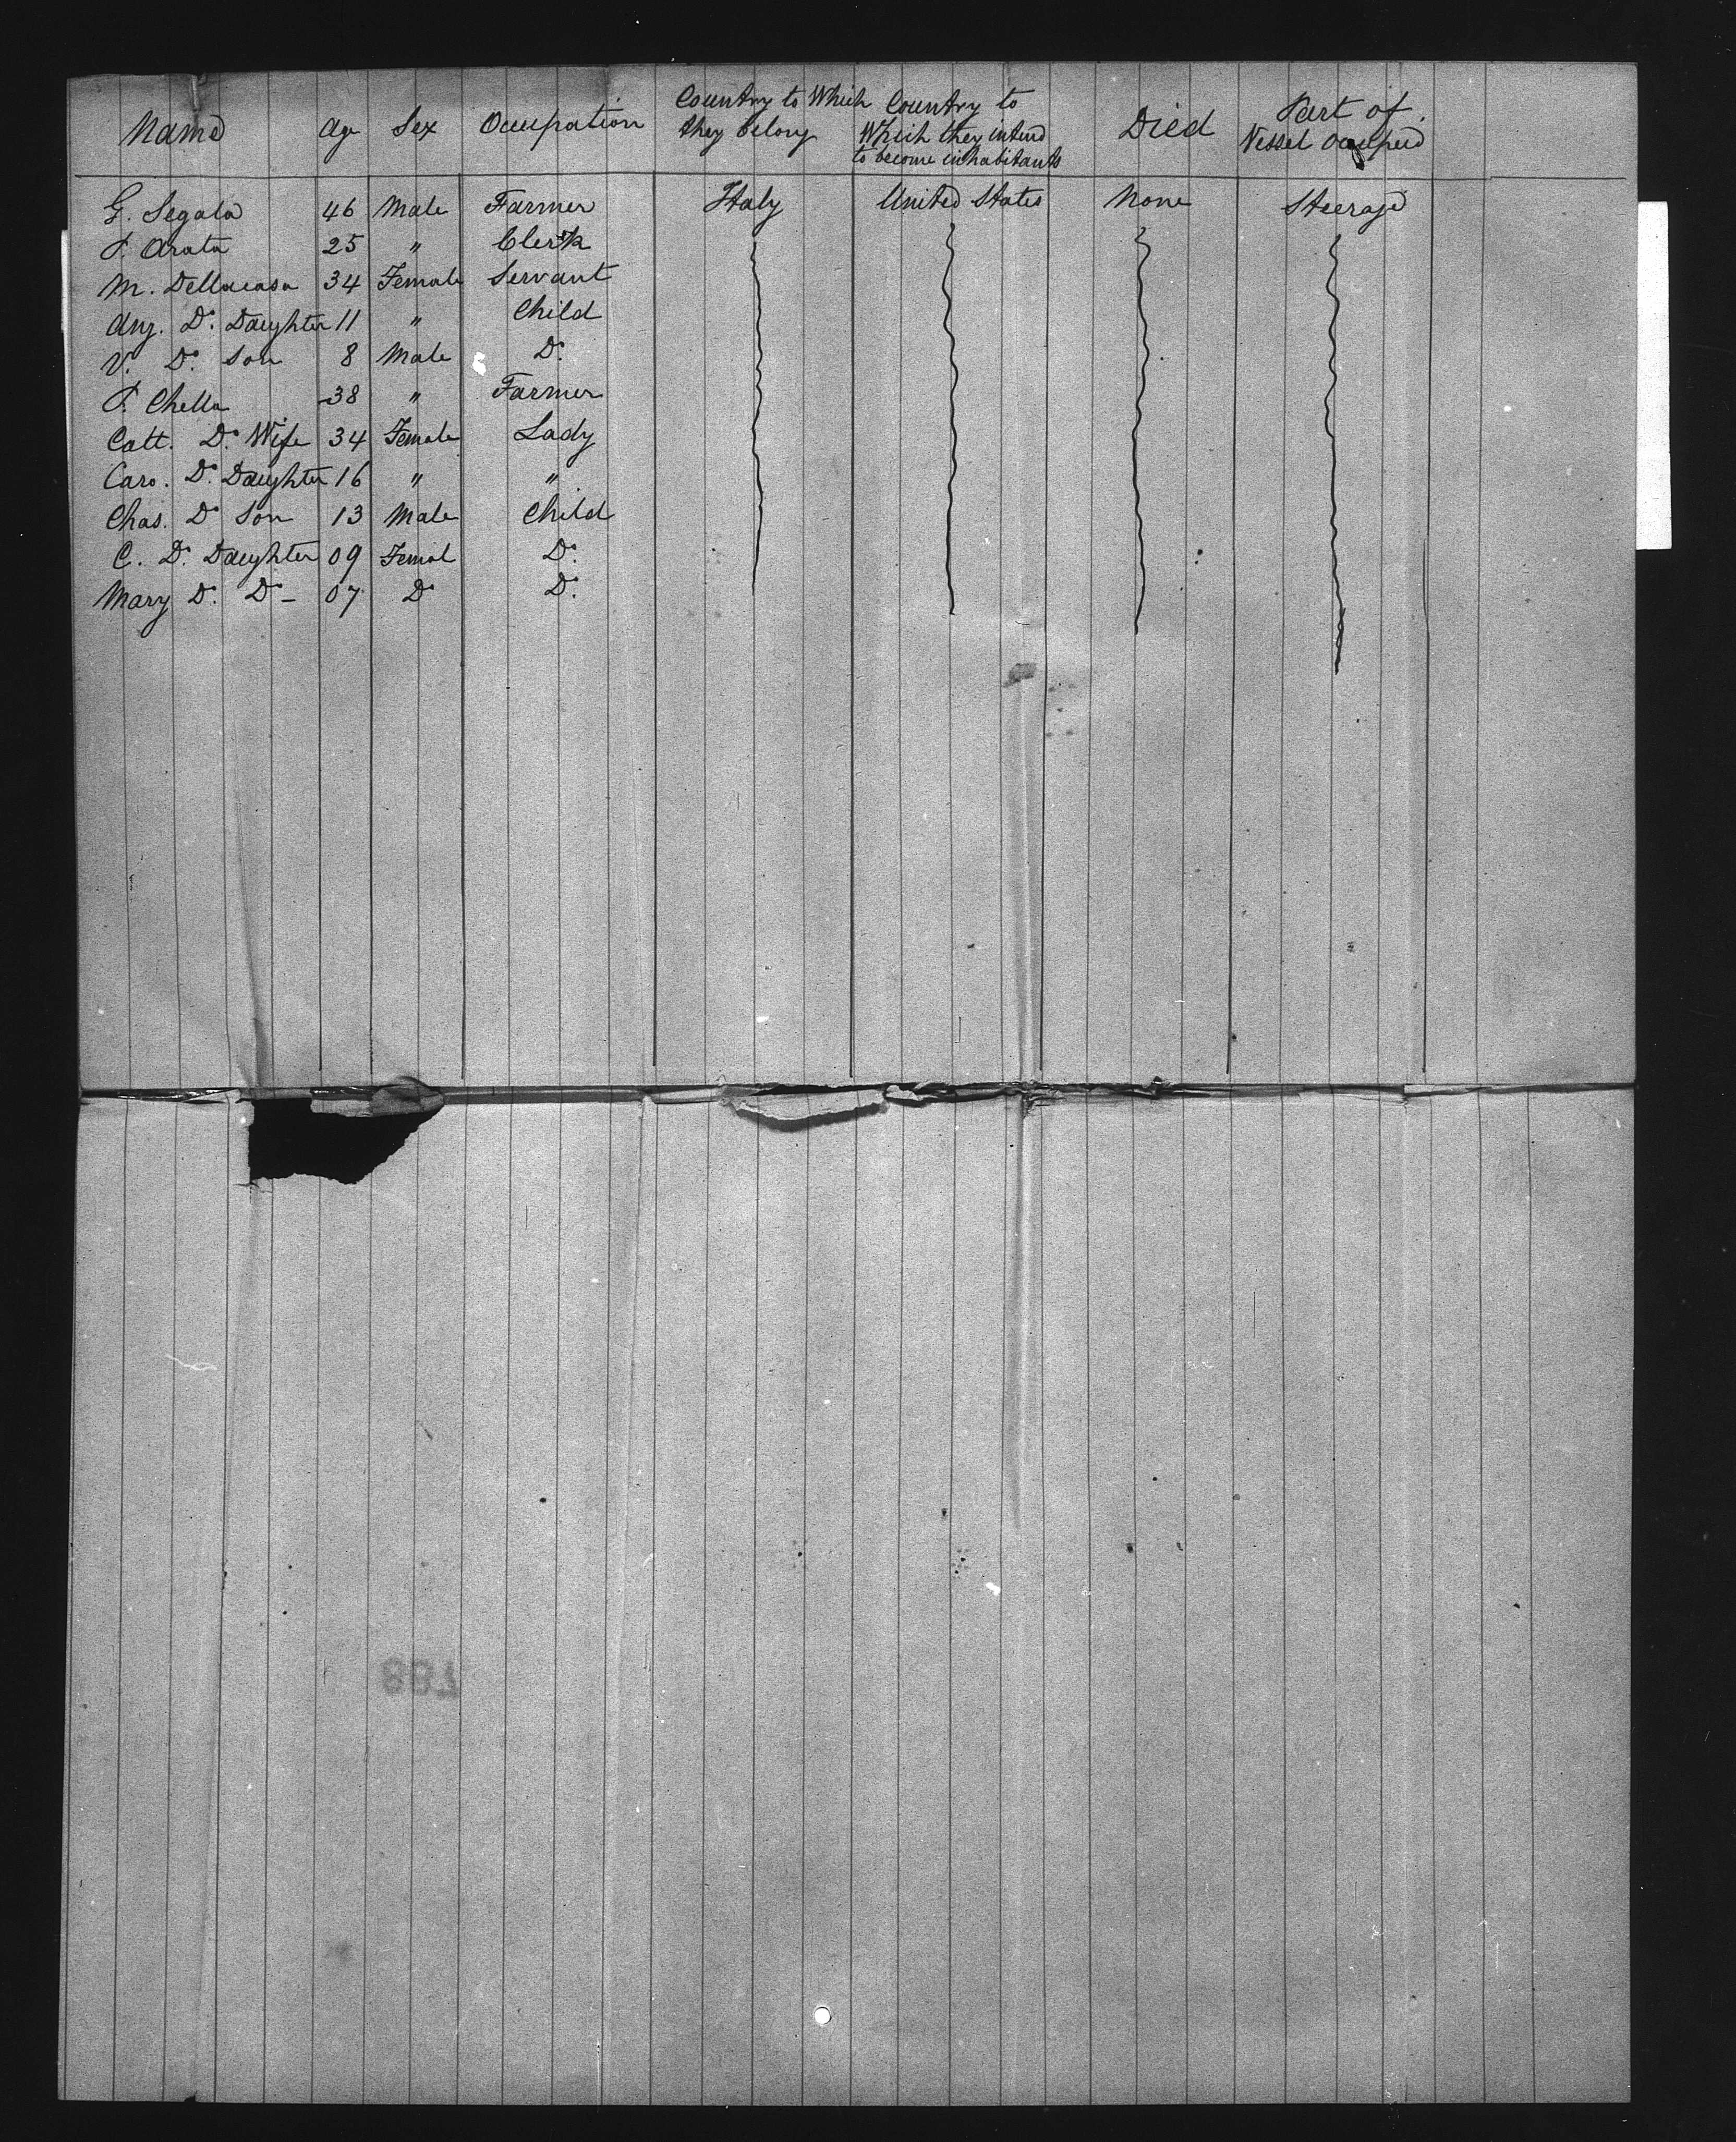 Name Age Sex Occupation Country to Which they belong Country to Which they intend to become inhabitants Died Part of Vessel Occupied
G. Segala 46 Male Farmer Italy United States None Steerage
P. Arata 25 " Clerk
M. Dellacasa 34 Female Servant
Ang. Do. Daughter 11 " Child
V. Do. Son 8 Male Do.
P. Chella 38 " Farmer
Catt. Do. Wife 34 Female Lady
Caro. Do. Daughter 16 " "
Chas. Do Son 13 Male Child
C. Do. Daughter 09 Femal Do.
Mary Do. Do - 07 Do Do.